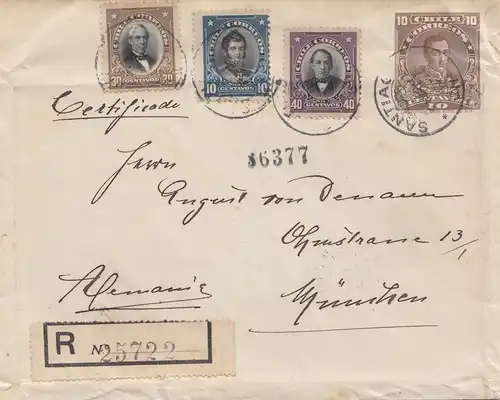 CHILE CORREOS
30 CENTAVOS 30
CHILE CORREOS
10 CENTAVOS 10
CHILE CORREOS
40 CENTAVOS 40
10 CHILE 10
CORREOS
10
SANTIAG
Certificado
36377
Herrn
August von Denann
Ohmstrasse 13/1
Alemania
München
R Nº 25722